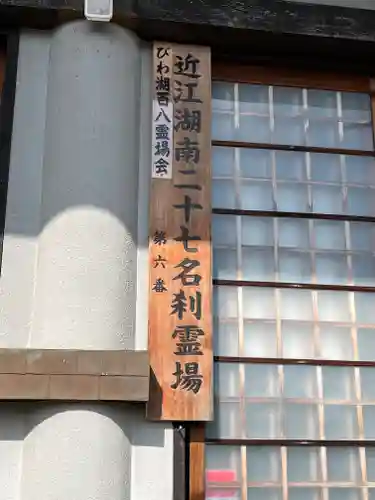 近江湖南二十七名刹霊場
びわ湖百八霊場会
第六番